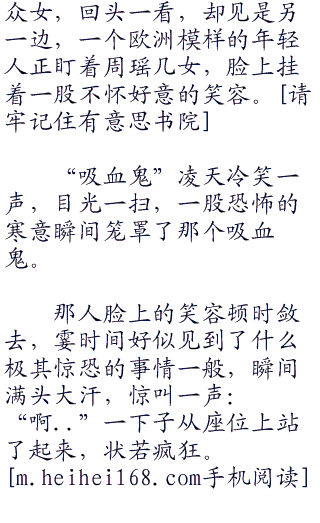 众女，回头一看，却见是另
一边，一个欧洲模样的年轻
人正盯着周瑶几女，脸上挂
着一股不怀好意的笑容。[请
牢记住有意思书院]
“吸血鬼”凌天冷笑一
声，目光一扫，一股恐怖的
寒意瞬间笼罩了那个吸血
鬼。
那人脸上的笑容顿时敛
去，霎时间好似见到了什么
极其惊恐的事情一般，瞬间
满头大汗，惊叫一声：
“啊..”一下子从座位上站
了起来，状若疯狂。
[m.heihei168.com手机阅读]